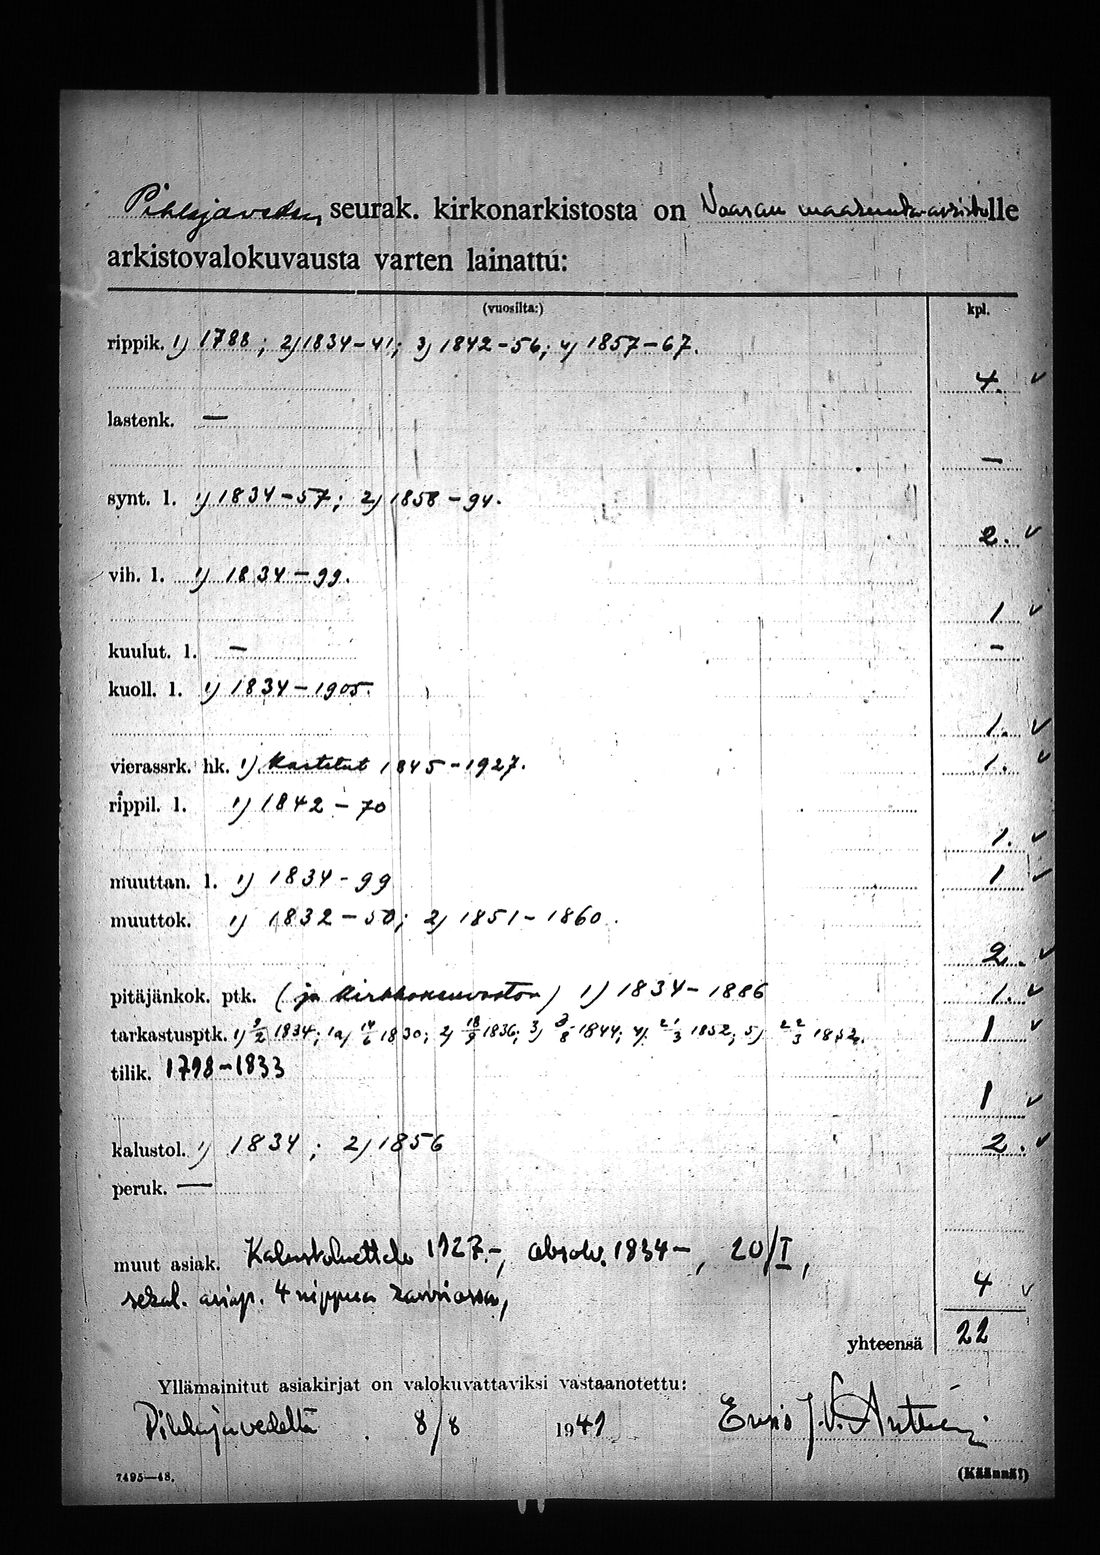 Pihlajaveden seurak. kirkonarkistosta on Vaasan maakunta-arkistolle
arkistovalokuvausta varten lainattu:
(vuosilta:) kpl.
rippik. 1) 1788; 2) 1834-41; 3) 1842-56; 4) 1857-67.
4.
lastenk. —
—
synt. l. 1) 1834-57; 2) 1858-94.
2.
vih. l. 1) 1834-99.
1
kuulut. l. — —
kuoll. l. 1) 1834-1905.
1.
vierassrk. hk. 1) Kastetut 1845-1927. 1.
rippil. l. 1) 1842-70
1.
muuttan. l. 1) 1834-99 1
muuttok. 1) 1832-50; 2) 1851-1860.
2.
pitäjänkok. ptk. (ja kirkkoneuvoston) 1) 1834-1886 1.
tarkastusptk. 1) 9/2 1834; 1a) 14/6 1830; 2) 18/9 1836; 3) 1844; 4) 21/3 1852; 5) 22/3 1852. 1
tilik. 1798-1833
1
kalustol. 1) 1834; 2) 1856 2.
peruk. —
muut asiak. Kalustoluettelo 1927-, absolv. 1834-, 20/I,
sekal. asiap. 4 nippua 4
yhteensä 22
Yllämainitut asiakirjat on valokuvattaviksi vastaanotettu:
Pihlajavedeltä. 8/8 1949 J.V.
7495—48. (Käännä!)